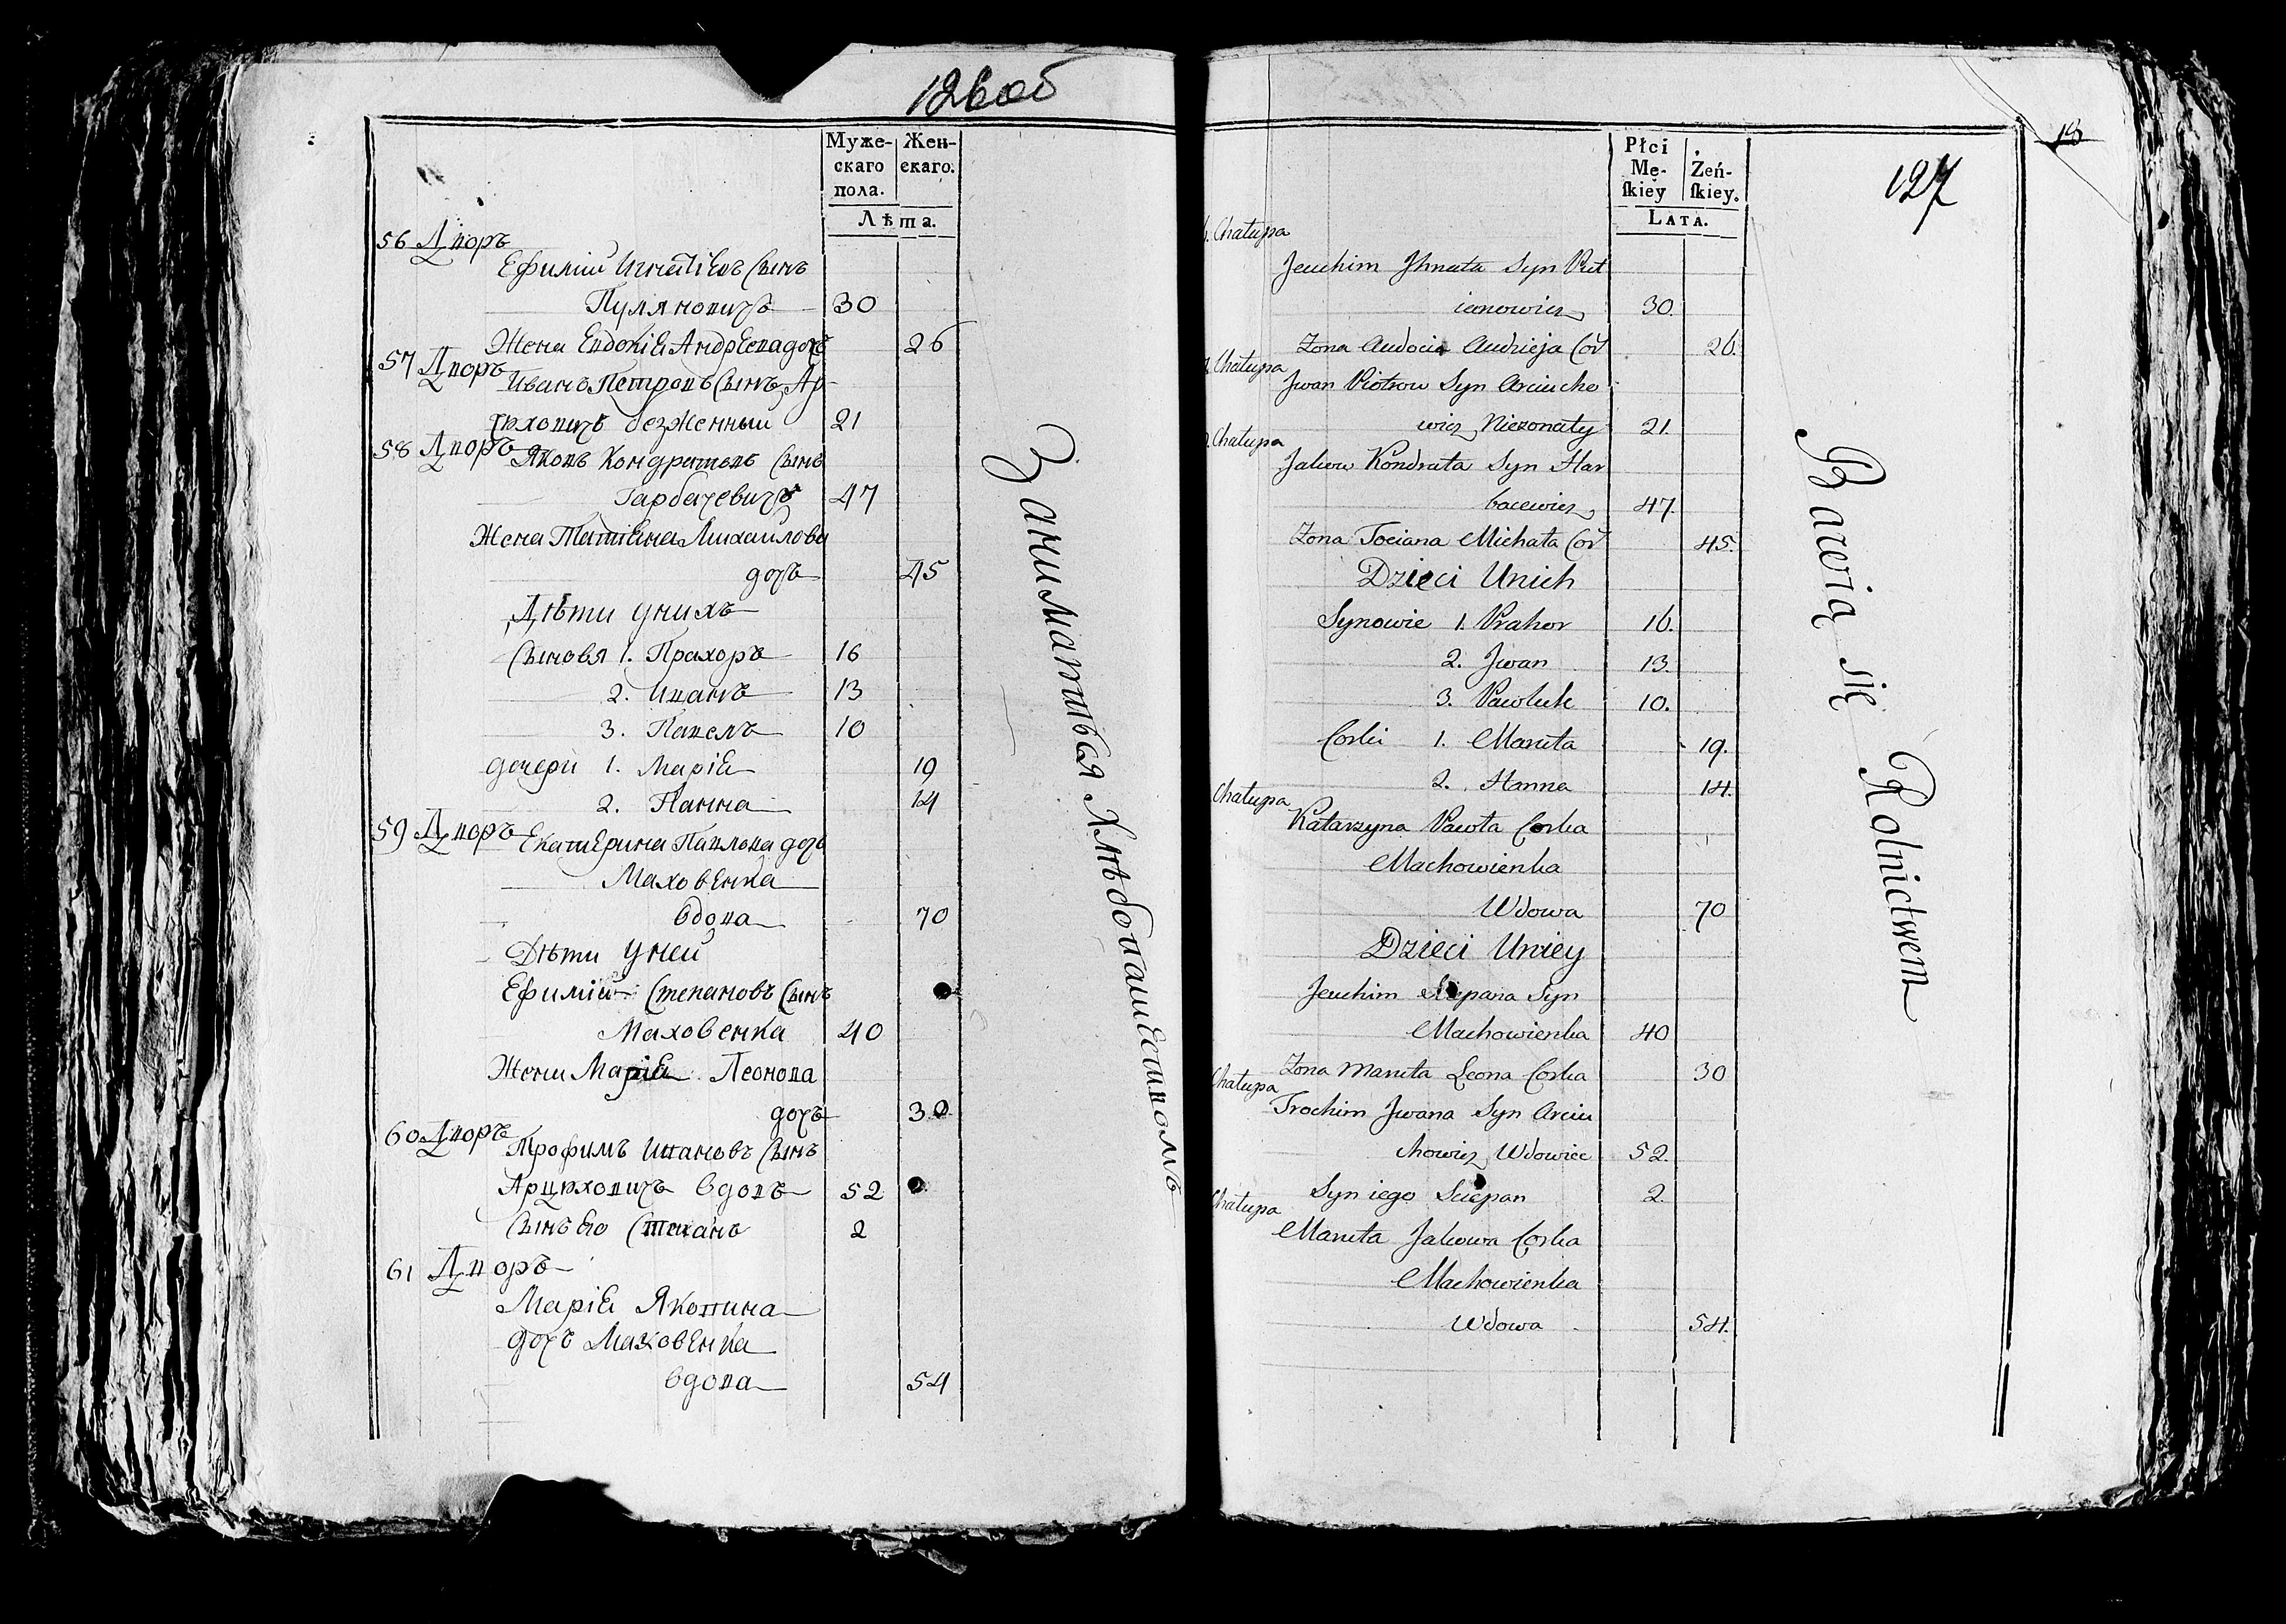 126 об
Муже-
скаго
пола.
Жен-
скаго.
Лѣта.
56 Дворъ
Ефимій Игнатіевъ Сынъ
Пуляновичъ 30
Жена Евдокіе Андреева дочь 26
57 Дворъ
Иванъ Петровъ Сынъ Ар-
тюховичъ безженный 21
58 Дворъ
Яковъ Кондратьевъ Сынъ
Гарбачевичъ 47
Жена Татіена Михаилова
дочъ 45
Дѣти унихъ
Сыновя 1. Прахоръ 16
2. Иванъ 13
3. Павелъ 10
дочери 1. Маріе 19
2. Ганна 14
59 Дворъ
Екатерина Павлова дочь
Маховенка
вдова 70
Дѣти Уней
Ефимій Степановъ Сынъ
Маховенка 40
Жена Маріе Леонова
дочъ 30
60 Дворъ
Трофимъ Ивановъ Сынъ
Арцюховичъ вдовъ 52
Сынъ Его Степанъ 2
61 Дворъ
Маріе Яковина
дочъ Маховенка
вдова 54
Занимаются Хлѣбопашествомъ
18
127
Płci
Mę-
ſkiey
Żeń-
ſkiey.
LATA.
Chałupa
Jeuchim Jhnata Syn Pul
ianowicz 30.
Zona Audocia Andrieja Cór 26.
Chałupa
Jwan Piotrow Syn Arciucho
wicz Niezonaty 21.
Chałupa
Jakow Kondrata Syn Har
bacewicz 47.
Zona Taciana Michała Cór 45.
Dzieci Unich
Synowie 1. Prahor 16.
2. Jwan 13.
3. Pawluk 10.
Corki 1. Maruta 19.
2. Hanna 14.
Chałupa
Katarzyna Pawła Corka
Machowienka
Wdowa 70
Dzieci Uniey
Jeuchim Sciepana Syn
Machowienka 40
Zona Maruta Leona Corka 30
Chałupa
Trochim Jwana Syn Arciu
chowicz Wdowiec 52.
Syn iego Sciepan 2.
Chałupa
Maruta Jakowa Corka
Machowienka
Wdowa 54.
Bawią się Rolnictwem